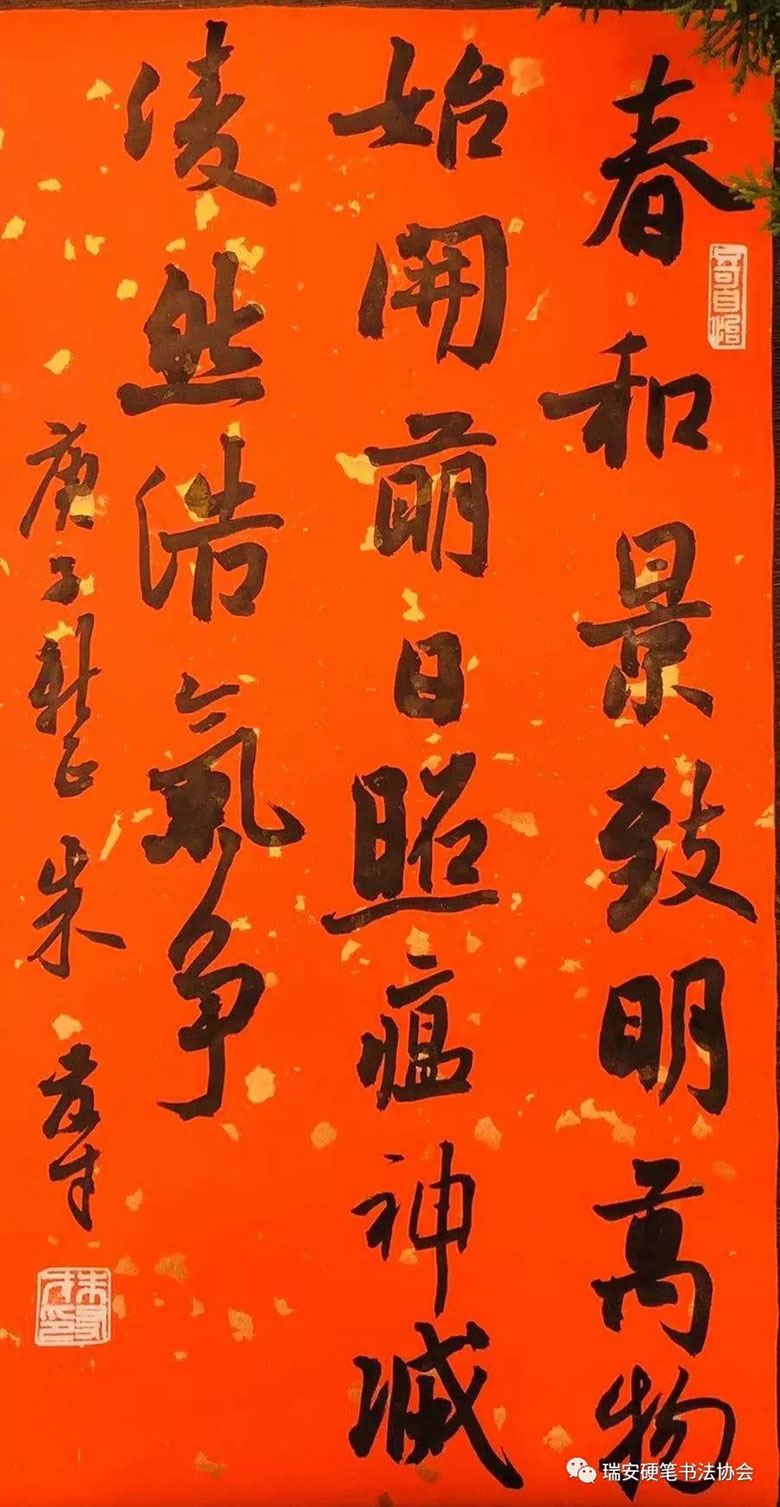 春和景致明萬物
始開萌日照瘟神滅
凌然浩氣争
庚子新正朱
瑞安硬笔书法协会